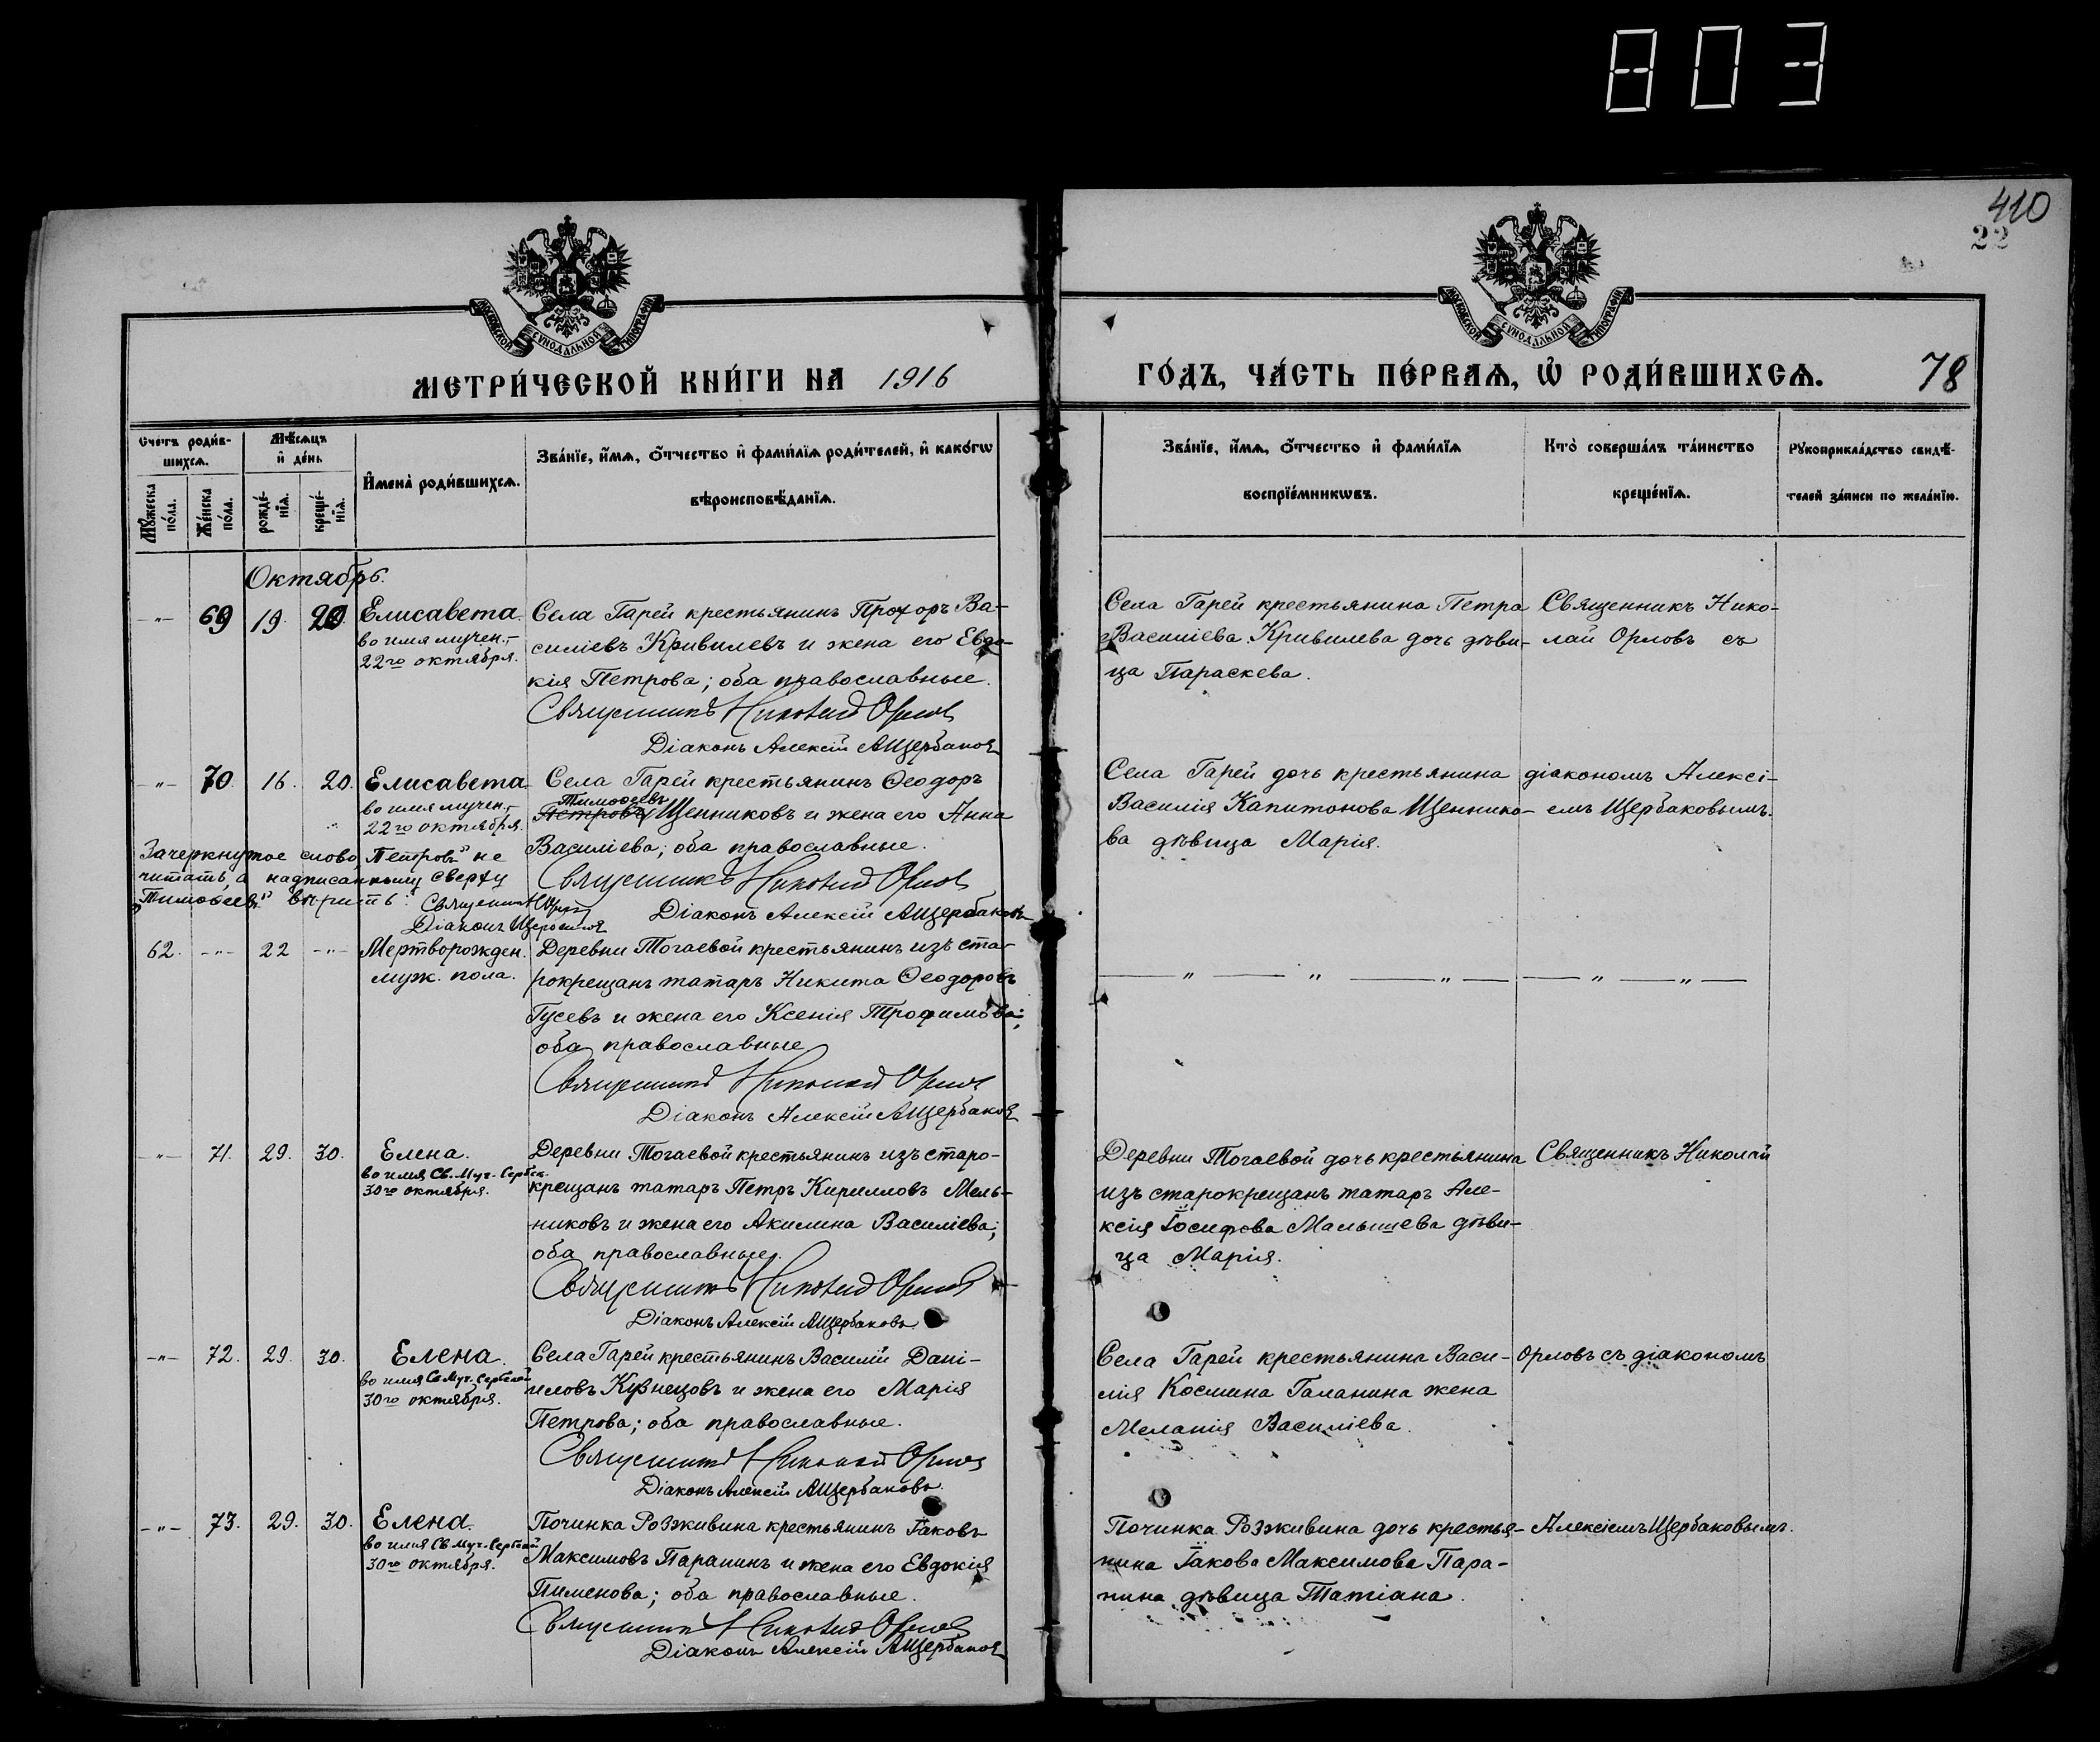 803
410
22
МОСКОВСКОЙ СѴНОДАЛЬНОЙ ТИПОГРАФІИ
МОСКОВСКОЙ СѴНОДАЛЬНОЙ ТИПОГРАФІИ
МЕТРИ́ЧЕСКОЙ КНИ́ГИ НА 1916
ГО́ДЪ, ЧА́СТЬ ПЕ́РВАѦ, Ѽ РОДИ́ВШИХСѦ.
78
Счетъ роди́в-
шихсѧ.
Мꙋ́жеска
по́ла.
Же́нска
по́ла.
Мѣ́сѧцъ
и҆ де́нь
рожде́-
нїѧ.
креще́-
нїѧ.
И҆мена̀ роди́вшихсѧ.
Зва́нїе, и҆́мѧ, ѻ҆́тчество и҆ фами́лїѧ роди́телей, и҆ како́гѡ
вѣроисповѣ́данїѧ.
Зва́нїе, и҆́мѧ, ѻ҆́тчество и҆ фами́лїѧ
воспрїе́мникѡвъ.
Кто̀ соверша́лъ та́инство
креще́нїѧ.
Рꙋкоприкла́дство свидѣ́-
телей за́писи по жела́нїю.
Октябрь.
-"- 69 19. 20. Елисавета.
во имя мучен.-
22го октября.
Села Гарей крестьянинъ Прохоръ Ва-
силіевъ Кривилевъ и жена его Евдо-
кія Петрова; оба православные.
Священникъ Николай Орловъ
Діаконъ Алексій АЩербаковъ
Села Гарей крестьянина Петра
Василіева Кривилева дочь дѣви-
ца Параскева.
Священникъ Нико-
лай Орловъ съ
-"- 70. 16. 20. Елисавета.
во имя мучен.-
22го октября.
Села Гарей крестьянинъ Ѳеодоръ
Тимоѳеевъ
Петровъ Щенниковъ и жена его Анна
Василіева; оба православные.
Священникъ Николай Орловъ
Діаконъ Алексій АЩербаковъ
Зачеркнутое слово „Петровъ" не
читать, а надписанному сверху
„Тимоѳеевъ" вѣрить. Священникъ НОрловъ
Діаконъ Щербаковъ
Села Гарей дочь крестьянина
Василія Капитонова Щеннико-
ва дѣвица Марія.
діакономъ Алексі-
емъ Щербаковымъ.
62. -"- 22 -"- Мертворожден.
муж. пола.
Деревни Тогаевой крестьянинъ изъ ста-
рокрещанъ татаръ Никита Ѳеодоровъ
Гусевъ и жена его Ксенія Трофимова;
оба православные
Священникъ Николай Орловъ
Діаконъ Алексій АЩербаковъ
— " — " — " — — " — " —
-"- 71. 29. 30. Елена.
во имя Св. Муч. Сербск.
30го октября.
Деревни Тогаевой крестьянинъ изъ старо-
крещанъ татаръ Петръ Кирилловъ Мель-
никовъ и жена его Акилина Василіева;
оба православные.
Священникъ Николай Орловъ
Діаконъ Алексій АЩербаковъ
Деревни Тогаевой дочь крестьянина
изъ старокрещанъ татаръ Але-
ксія Іосифова Малышева дѣви-
ца Марія.
Священникъ Николай
-"- 72. 29. 30. Елена.
во имя Св Муч. Сербской
30го октября.
Села Гарей крестьянинъ Василій Дані-
иловъ Кузнецовъ и жена его Марія
Петрова; оба православные.
Священникъ Николай Орловъ
Діаконъ Алексій АЩербаковъ.
Села Гарей крестьянина Васи-
лія Космина Галанина жена
Меланія Василіева.
Орловъ съ діакономъ
-"- 73. 29. 30. Елена.
во имя Св Муч. Сербской
30го октября.
Починка Розживина крестьянинъ Іаковъ
Максимовъ Паранинъ и жена его Евдокія
Пименова; оба православные.
Священникъ Николай Орловъ
Діаконъ Алексій АЩербаковъ
Починка Розживина дочь крестья-
нина Іакова Максимова Пара-
нина дѣвица Татіана.
Алексіемъ Щербаковымъ.